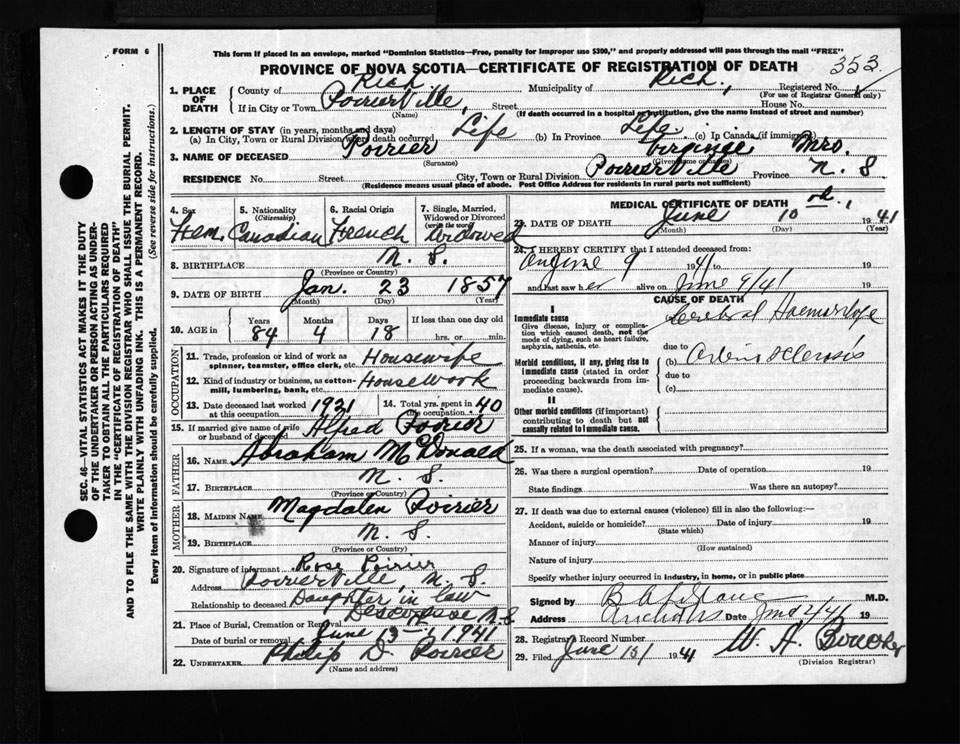 FORM 6
This form if placed in an envelope, marked "Dominion Statistics—Free, penalty for improper use $300," and properly addressed will pass through the mail "FREE"
PROVINCE OF NOVA SCOTIA—CERTIFICATE OF REGISTRATION OF DEATH
353
1. PLACE OF DEATH County of Rich. Municipality of Rich. Registered No.
(For use of Registrar General only)
If in City or Town Poirierville, Street House No.
(Name) (If death occurred in a hospital or institution, give the name instead of street and number)
2. LENGTH OF STAY (in years, months and days)
(a) In City, Town or Rural Division where death occurred Life (b) In Province Life (c) In Canada (if immigrant)
3. NAME OF DECEASED Poirier Virginie Mrs.
(Surname) (Given name or names)
RESIDENCE No. Street City, Town or Rural Division Poirierville Province N. S.
(Residence means usual place of abode. Post Office Address for residents in rural parts not sufficient)
4. Sex Fem.
5. Nationality (Citizenship) Canadian
6. Racial Origin French
7. Single, Married, Widowed or Divorced (write the word) Widowed
8. BIRTHPLACE N. S.
(Province or Country)
9. DATE OF BIRTH Jan. 23 1857
(Month) (Day) (Year)
10. AGE in Years Months Days If less than one day old
84 4 18 hrs. or min.
OCCUPATION
11. Trade, profession or kind of work as spinner, teamster, office clerk, etc. Housewife
12. Kind of industry or business, as cotton-mill, lumbering, bank, etc. Housework
13. Date deceased last worked at this occupation 1921
14. Total yrs. spent in this occupation 40
15. If married give name of wife or husband of deceased Alfred Poirier
FATHER
16. NAME Abraham McDonald
17. BIRTHPLACE N. S.
(Province or Country)
MOTHER
18. MAIDEN NAME Magdalen Poirier
19. BIRTHPLACE N. S.
(Province or Country)
20. Signature of informant Rose Poirier
Address Poirierville, N. S.
Relationship to deceased Daughter in law
21. Place of Burial, Cremation or Removal Descousse N.S
Date of burial or removal June 13 1941
22. UNDERTAKER Philip D. Poirier
(Name and address)
MEDICAL CERTIFICATE OF DEATH
23. DATE OF DEATH June 10 th, 1941
(Month) (Day) (Year)
24. I HEREBY CERTIFY that I attended deceased from:
On June 9 1941 to 19
and last saw her alive on June 9/41 19
CAUSE OF DEATH
I
Immediate cause Cerebral Haemorrhage
Give disease, injury or complication which caused death, not the mode of dying, such as heart failure, asphyxia, asthenia, etc.
due to
Morbid conditions, if any, giving rise to immediate cause (stated in order proceeding backwards from immediate cause).
(b)
due to
(c)
II
Other morbid conditions (if important) contributing to death but not causally related to immediate cause.
25. If a woman, was the death associated with pregnancy?
26. Was there a surgical operation? Date of operation 19
State findings Was there an autopsy?
27. If death was due to external causes (violence) fill in also the following:—
Accident, suicide or homicide? Date of injury 19
(State which)
Manner of injury
(How sustained)
Nature of injury
Specify whether injury occurred in industry, in home, or in public place
Signed by M.D.
Address Date
28. Registrar's Record Number
29. Filed June 15/ 1941 W. A. Boucher
(Division Registrar)
SEC. 46—VITAL STATISTICS ACT MAKES IT THE DUTY
OF THE UNDERTAKER OR PERSON ACTING AS UNDER-
TAKER TO OBTAIN ALL THE PARTICULARS REQUIRED
IN THE "CERTIFICATE OF REGISTRATION OF DEATH"
AND TO FILE THE SAME WITH THE DIVISION REGISTRAR WHO SHALL ISSUE THE BURIAL PERMIT.
WRITE PLAINLY WITH UNFADING INK. THIS IS A PERMANENT RECORD.
Every item of information should be carefully supplied. (See reverse side for instructions.)